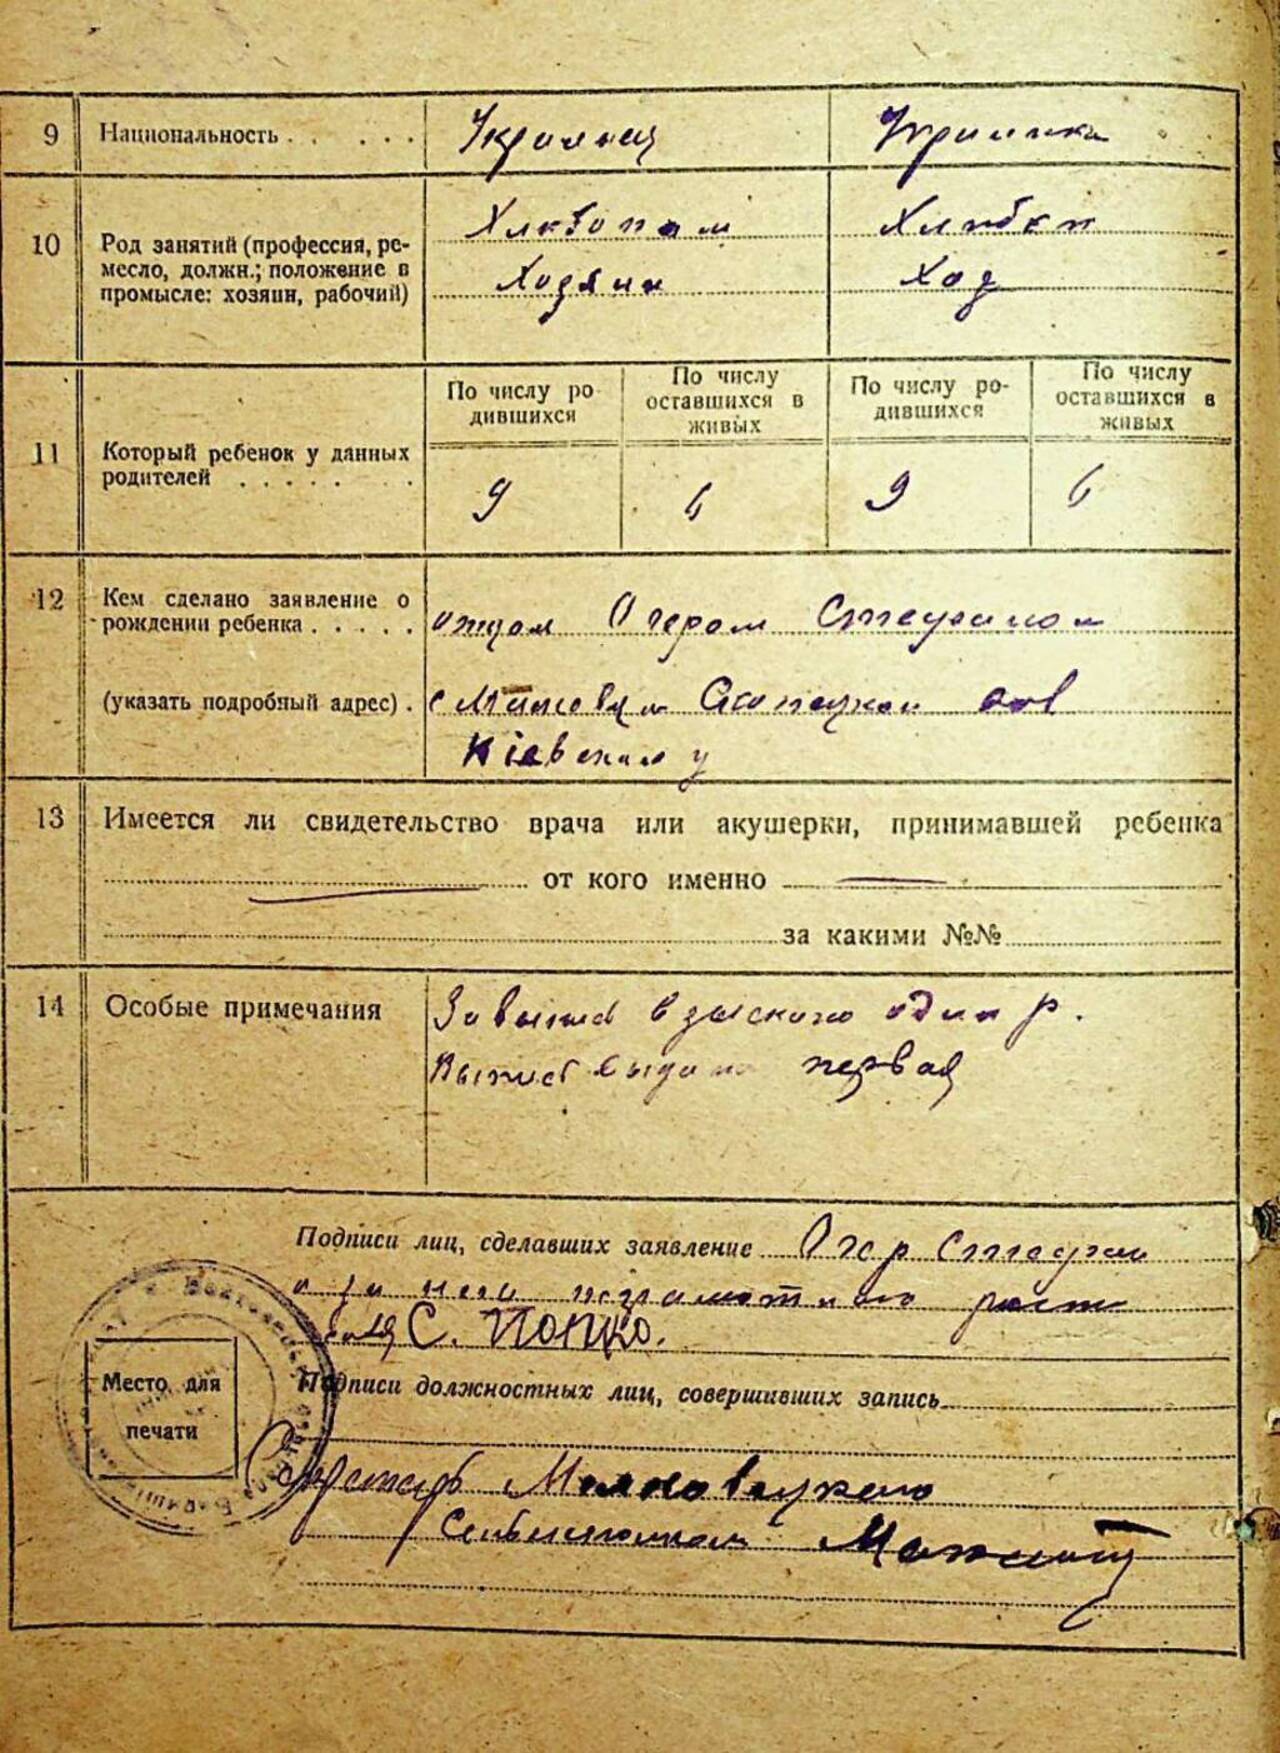 9 Национальность . . . . . . Украинец Украинка
10 Род занятий (профессия, ре-
месло, должн.; положение в
промысле: хозяин, рабочий)
Хлебопаш Хлебоп
Хозяин Хоз
11 Который ребенок у данных
родителей . . . . . .
По числу ро-
дившихся
По числу
оставшихся в
живых
По числу ро-
дившихся
По числу
оставшихся в
живых
9 6 9 6
12 Кем сделано заявление о
рождении ребенка . . . . .
отцом Очером Стефаном
(указать подробный адрес) .
с
Кіевского у
13 Имеется ли свидетельство врача или акушерки, принимавшей ребенка
от кого именно
за какими №№
14 Особые примечания
взыскано один р.
Выпись выдана первая
Подписи лиц, сделавших заявление Очер Стефан
а за него неграмотного
С. Попко.
Место для
печати
Подписи должностных лиц, совершивших запись
Секретарь